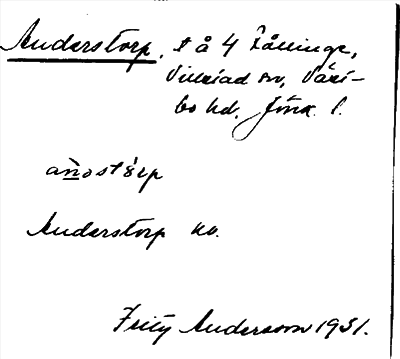 Anderstorp, t å 4 Källinge,
Villstad sn, Väst-
bo hd, Jönk. l.
añostərp
Anderstorp ko.
Frity Andersson 1931.